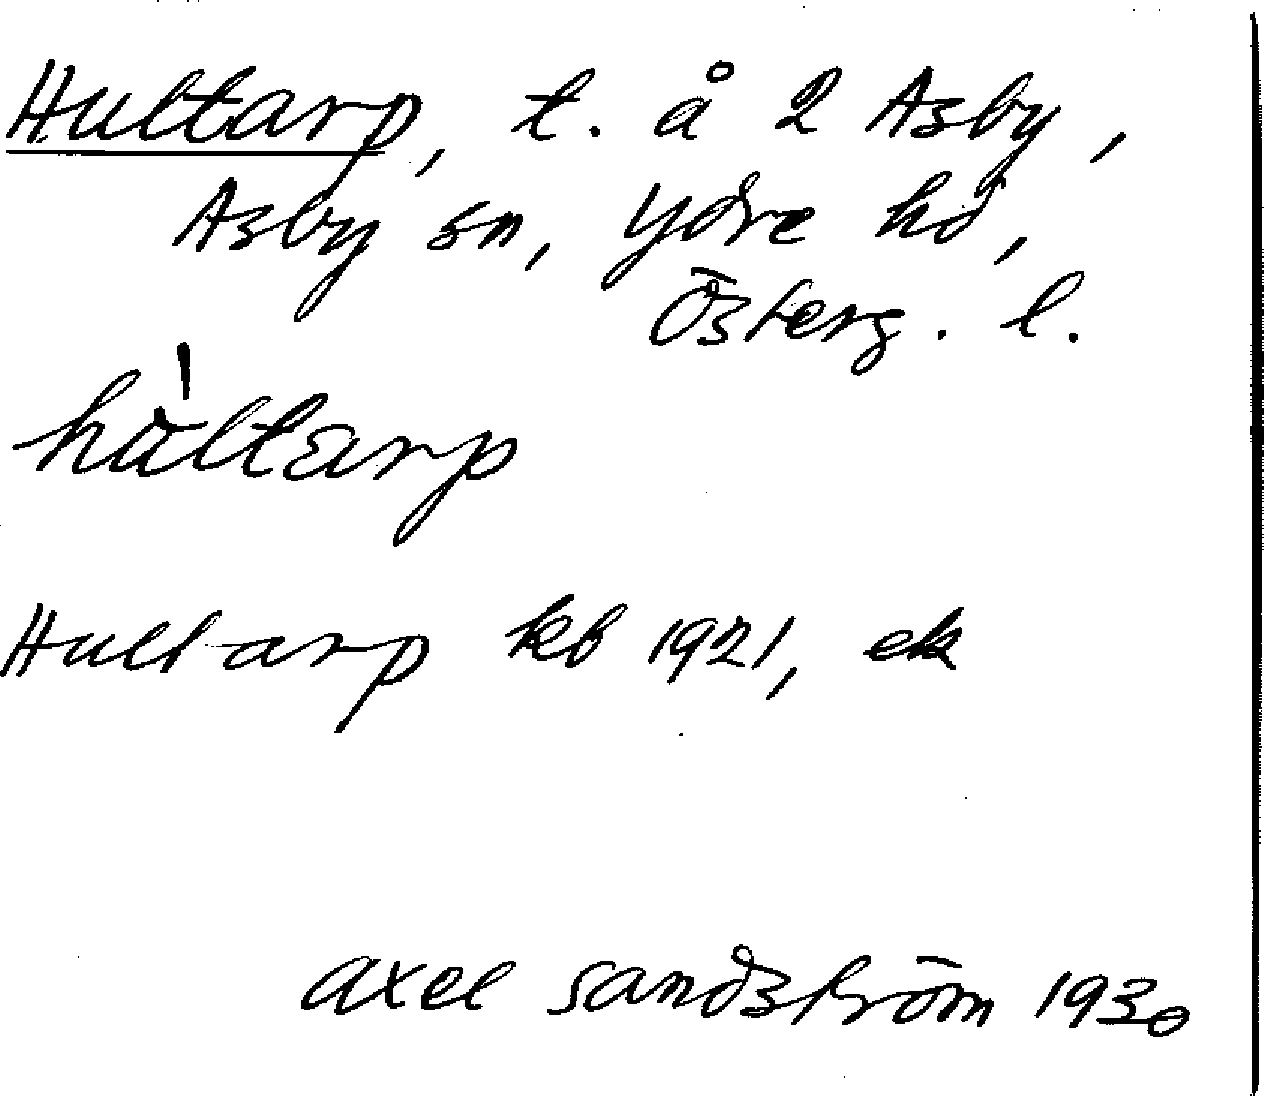 Hultarp, t. å 2 Asby,
Asby sn, Ydre hd,
Österg. l.
hùltarp
Hultarp kb 1921, ek
Axel Sandström 1930